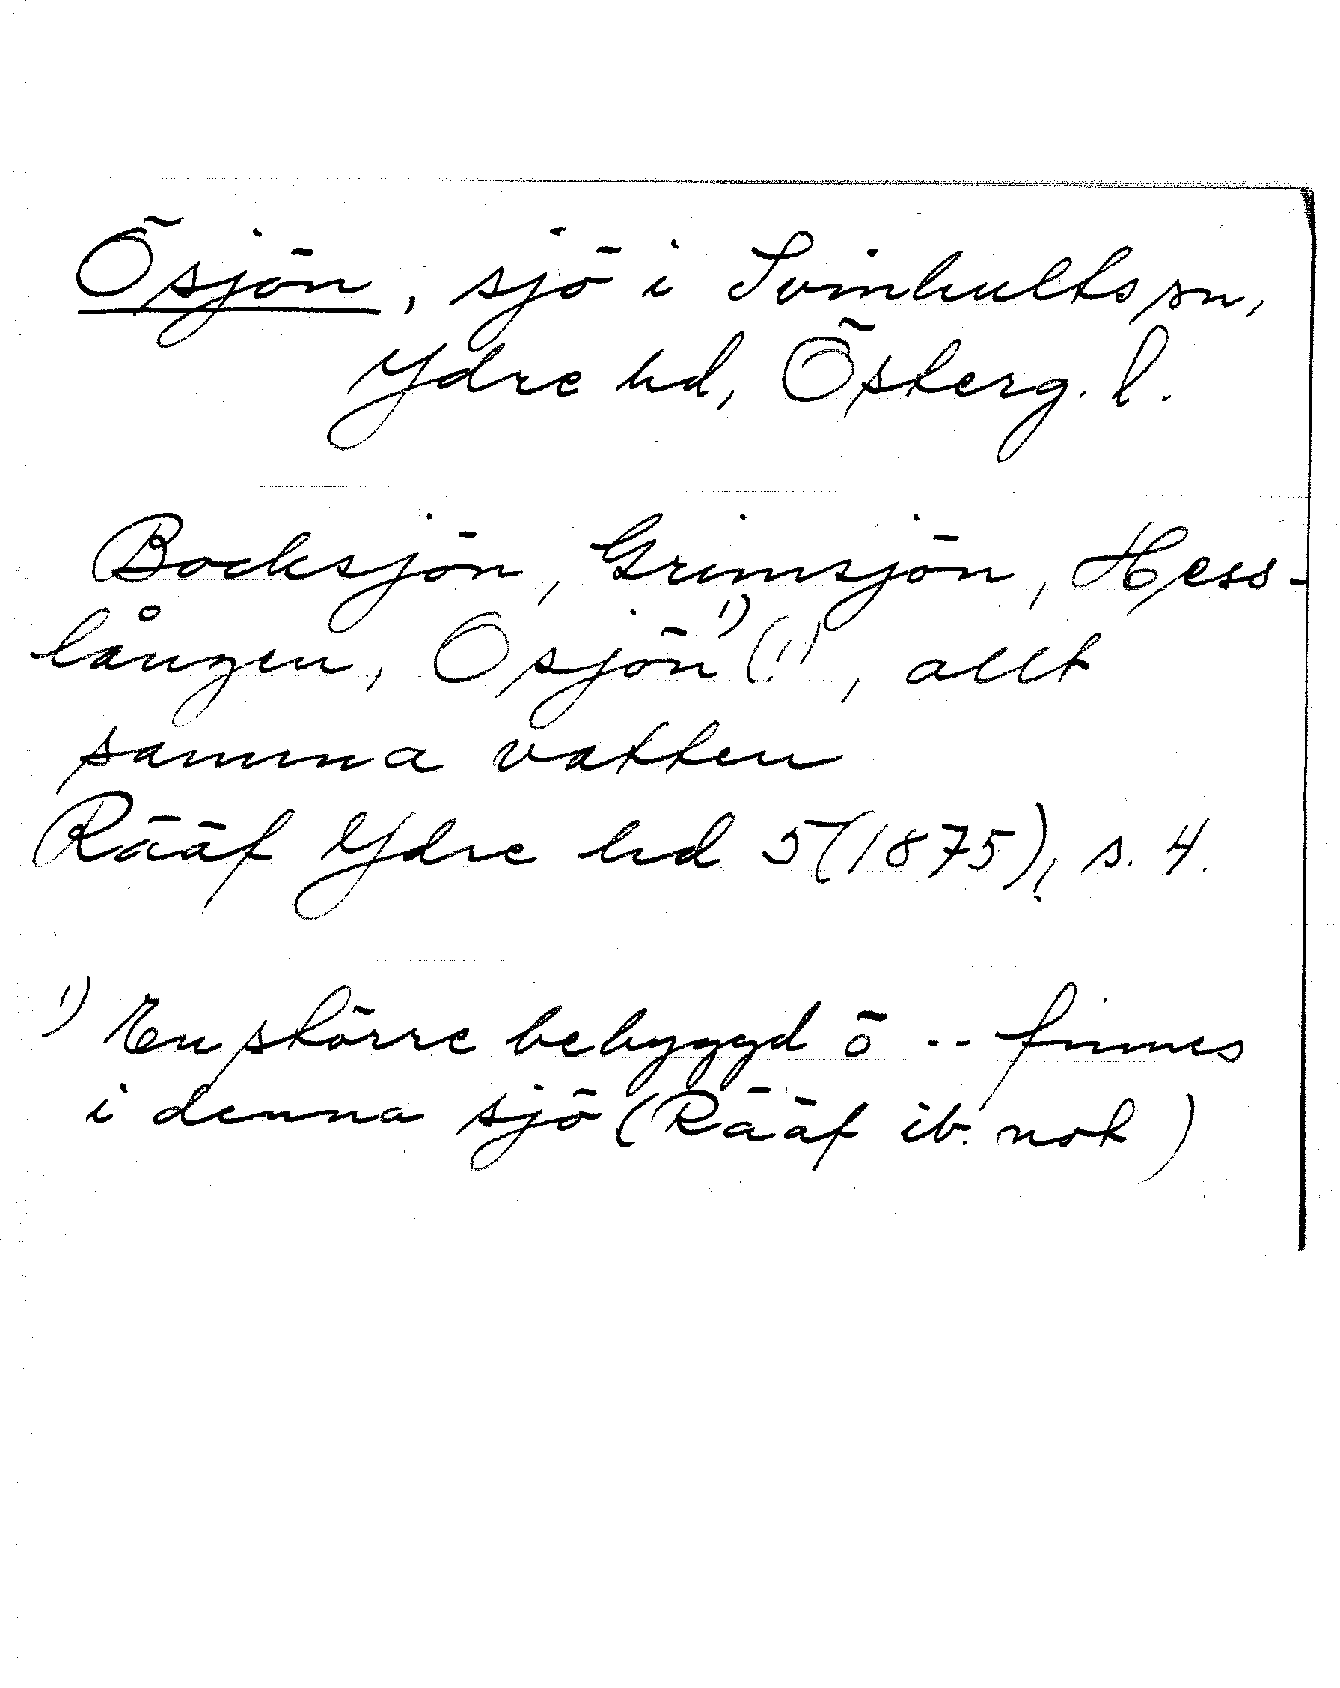 Ösjön, sjö i Svinhults sn,
Ydre hd, Österg. l.
Bocksjön, Grimsjön, Hess-
lången, Osjön¹⁾ (!), allt
samma vatten
Rääf Ydre hd 5 (1875), s. 4.
¹⁾ En större bebyggd ö -- finnes
i denna sjö (Rääf ib. not)